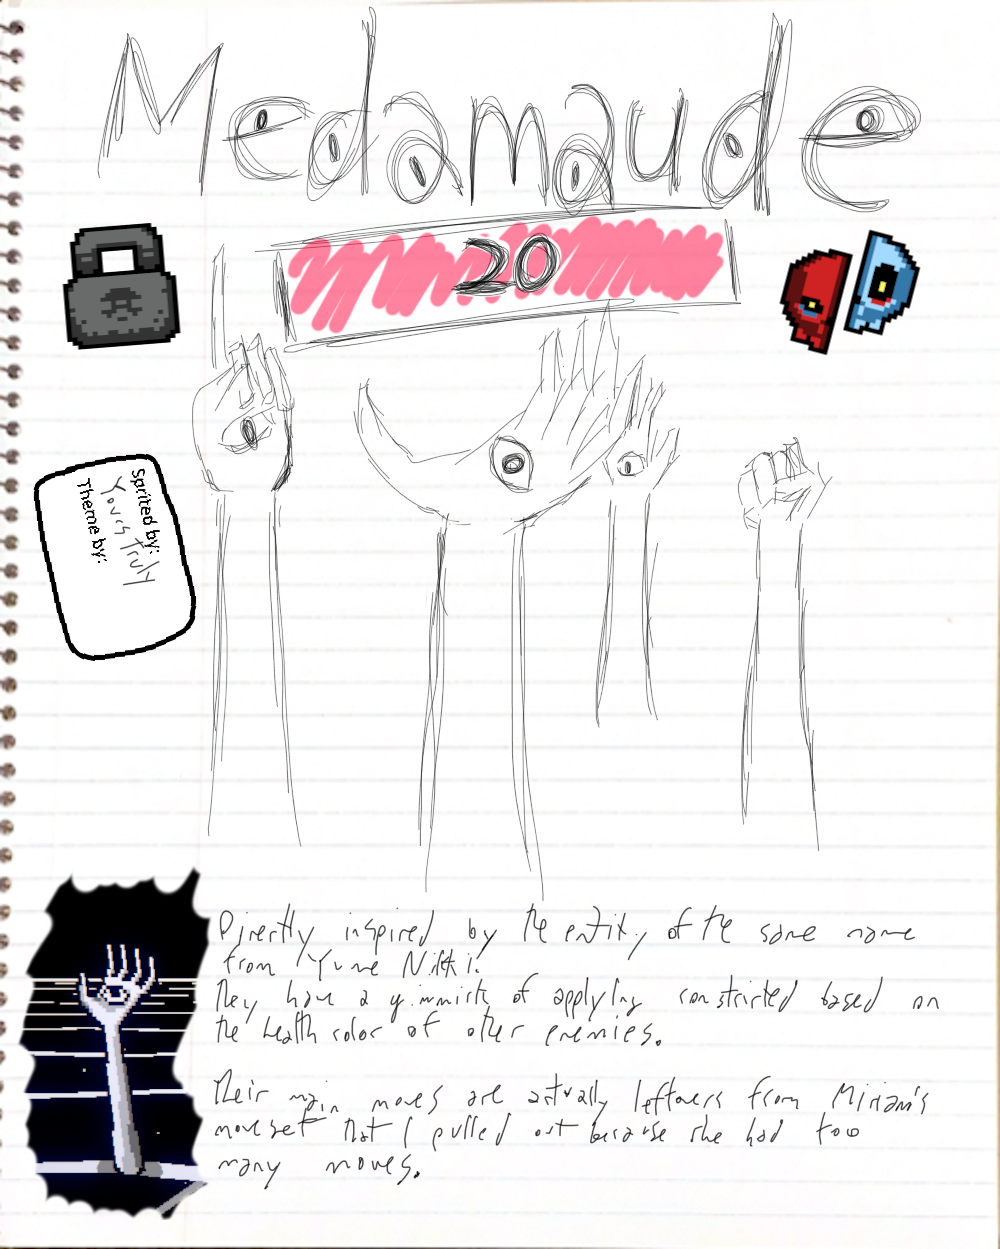 Medamaude
20
Sprited by:
Yours truly
Theme by:
Directly inspired by the entity of the same name
from Yume Nikki.
They have a gimmick of applying constricted based on
the health color of other enemies.
Their main moves are actually leftovers from Miriam's
moveset that I pulled out because she had too
many moves.